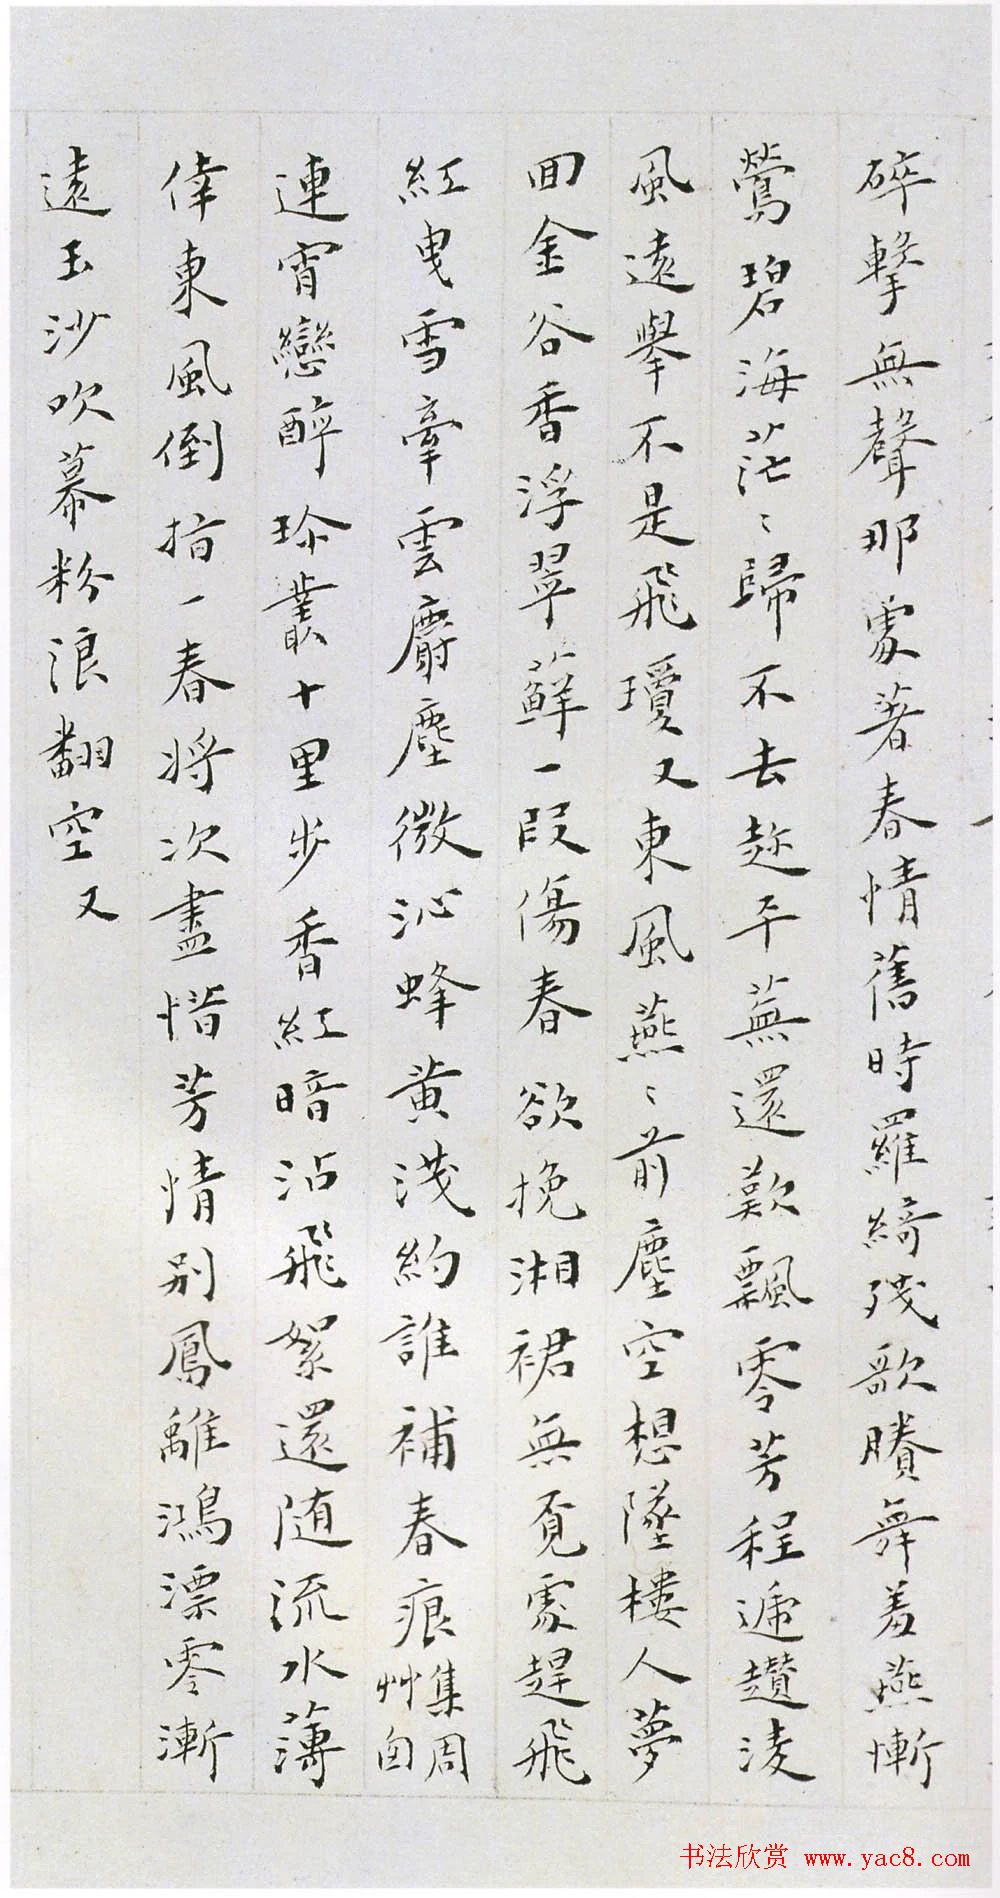 碎擊無聲那處著春情舊時羅綺殘歌賸舞羞燕慚
鶯碧海茫〻歸不去趁平蕪還歎飄零芳程遞趲淩
風遠舉不是飛瓊又東風燕〻前塵空想墜樓人夢
回金谷香浮翠蘚一段傷春欲挽湘裙無覓處趕飛
紅曳雪牽雲麝塵微沁蜂黃淺約誰補春痕集周艸囪
連宵戀醉珍叢十里步香紅暗沾飛絮還随流水薄
倖東風倒指一春將次盡惜芳情别鳳離鴻漂零漸
遠玉沙吹幕粉浪翻空又
书法欣赏 www.yac8.com